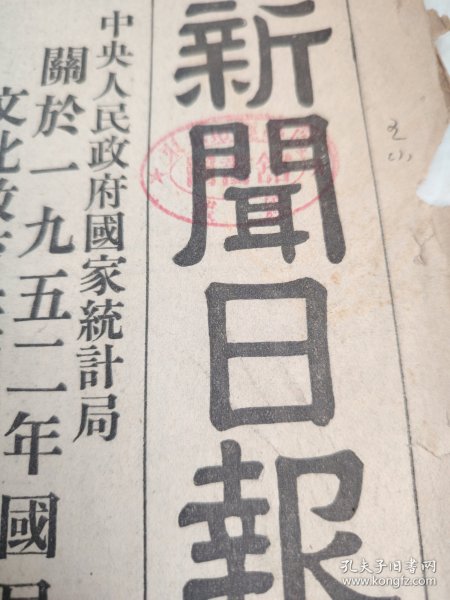 新聞日報
中央人民政府國家統計局
關於一九五二年國民
文化教育
孔夫子旧书网
www.kongfz.com